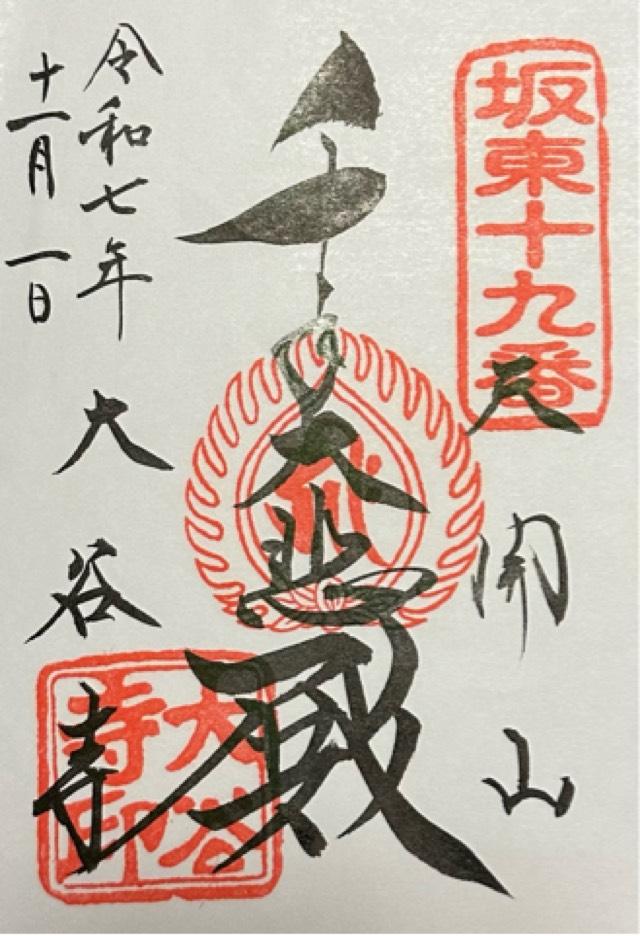 坂東十九番
天開山
大悲殿
大谷寺
令和七年
十一月一日
大谷
寺印